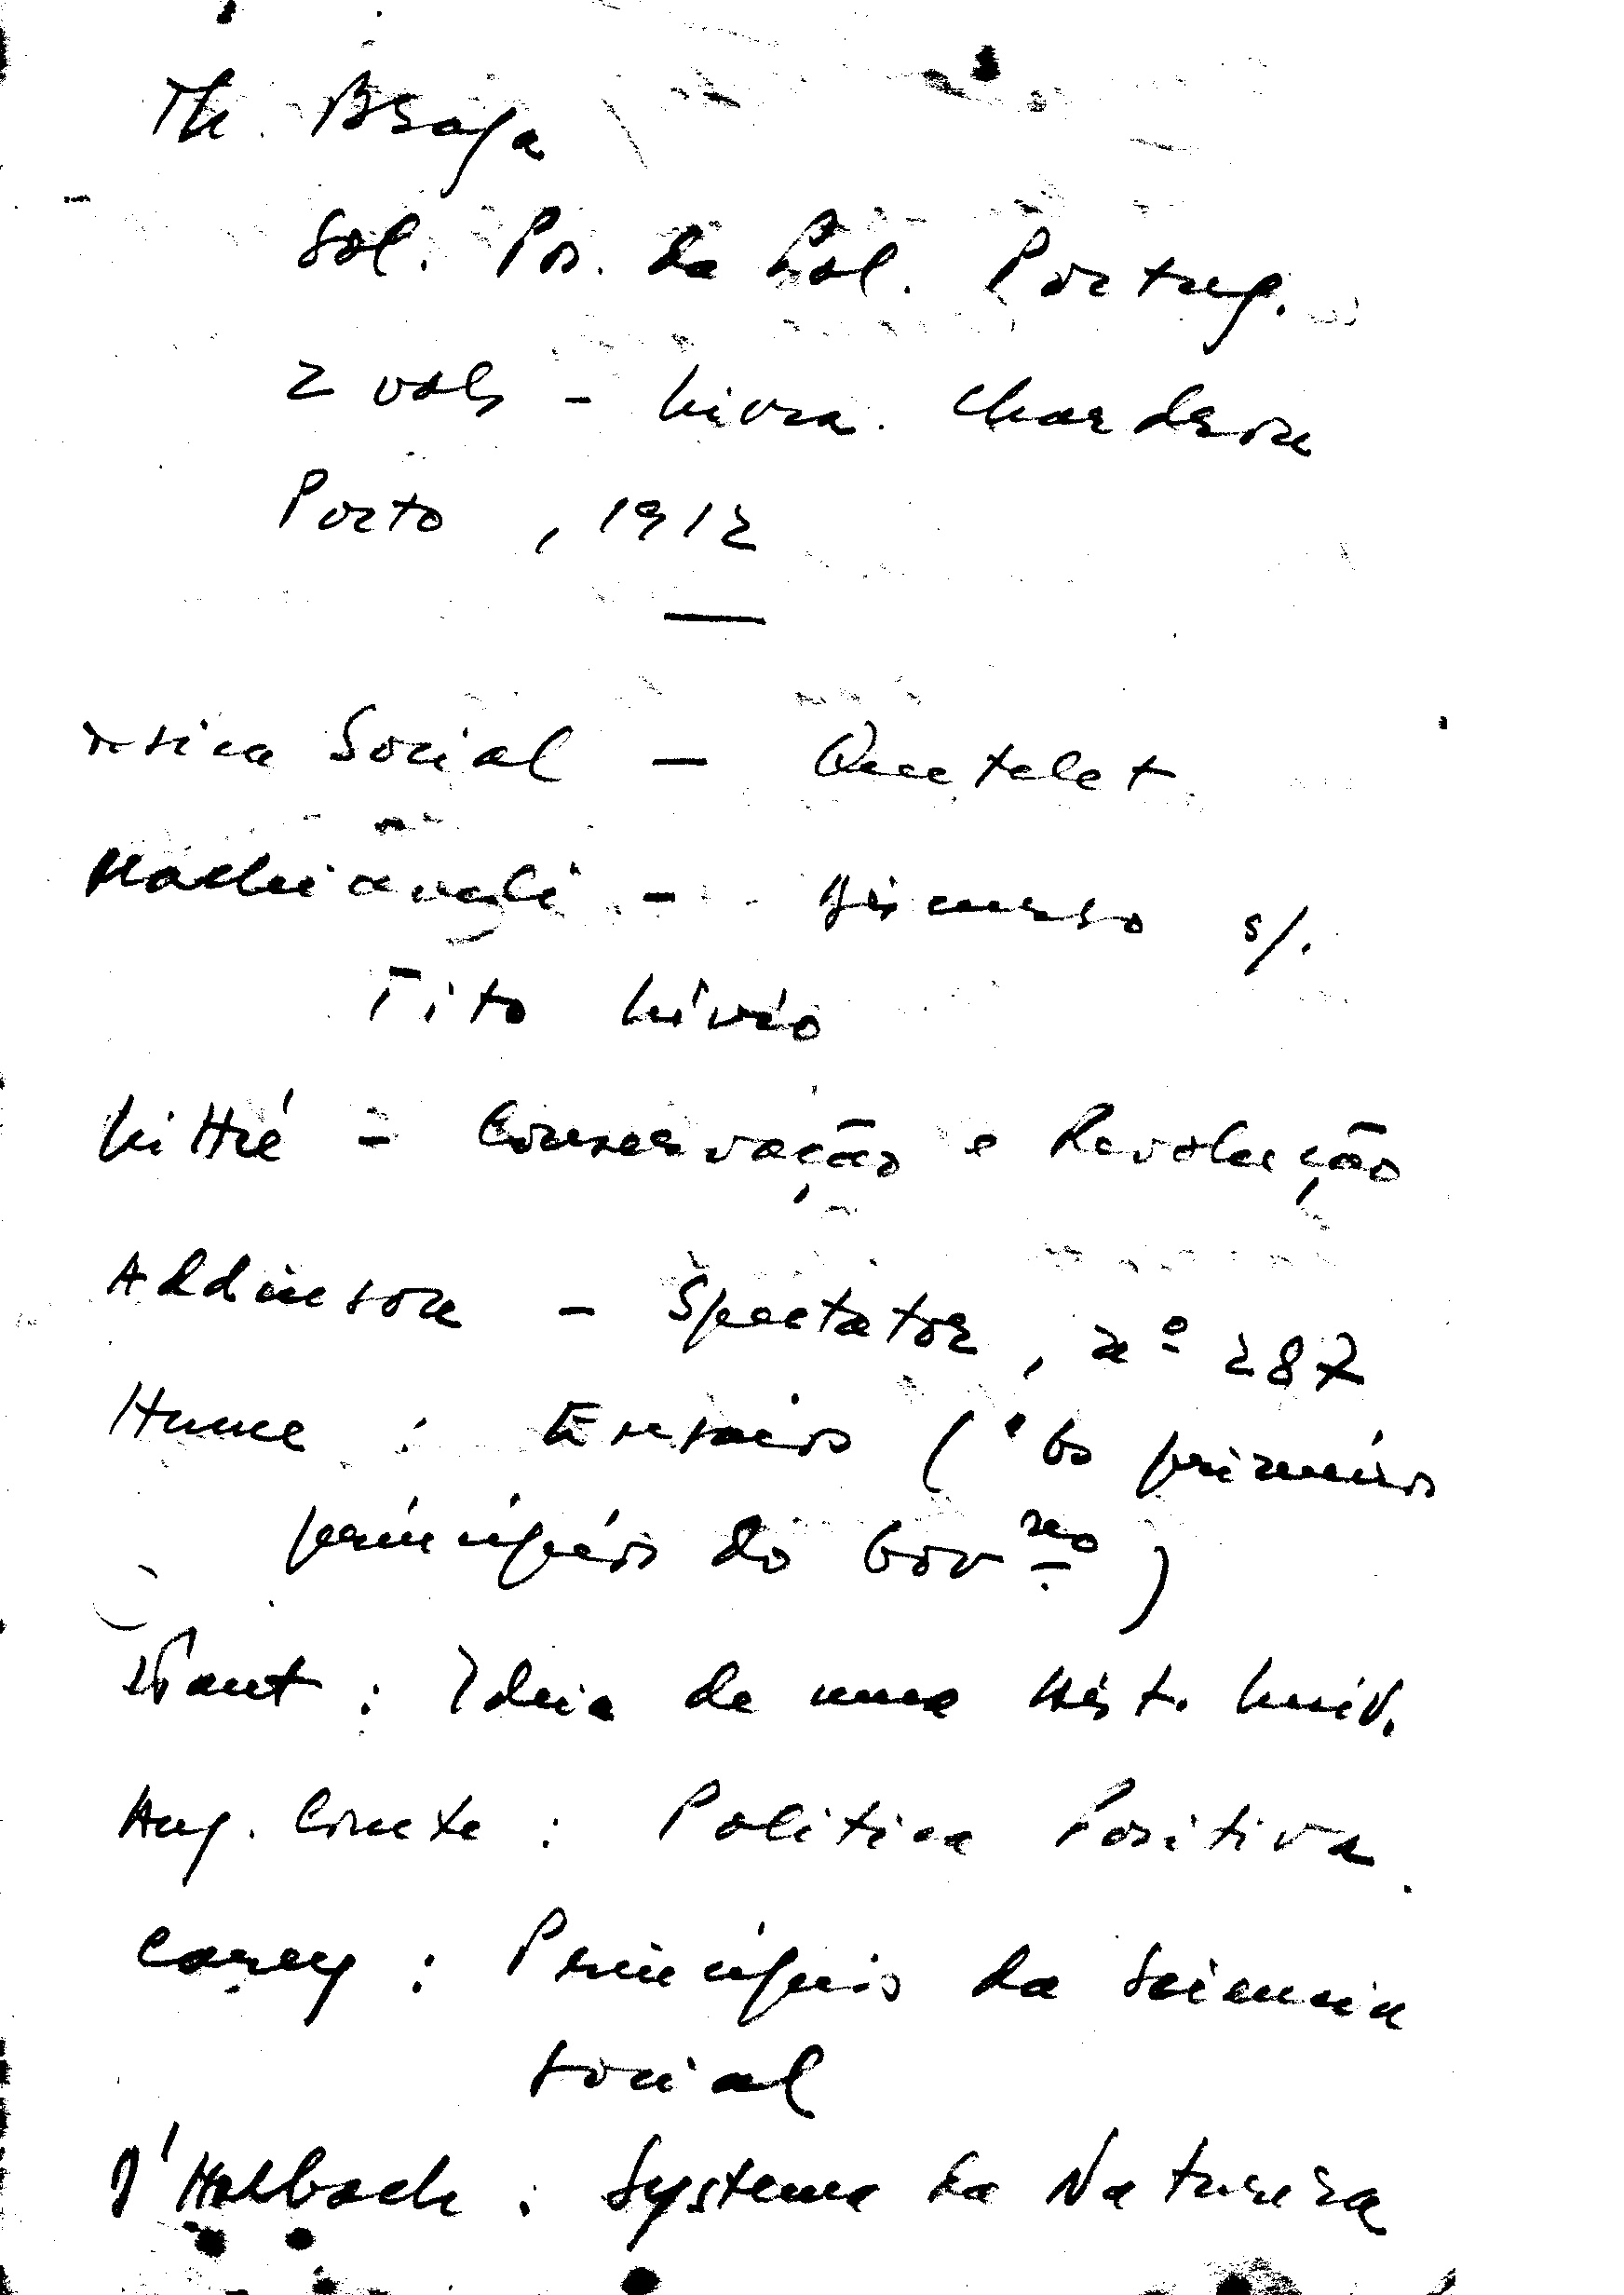 Th. Braga
Sol. Pos. da Pol. Portug.
2 vols - Livra. Chardron
Porto, 1912
Social - Quetelet
Machiaveli - Discurso s/.
Tito Lívio
Littré - Conservação e Revolução
Addinson - Spectator, nº 287
Hume : Ensaios ("Os primeiros
princípios do Govno)
Kant : Ideia de uma Hist. Univ.
Aug. Comte : Politica Positiva.
Carey : Princípios da Sciencia
social
D'Holbach : Systema da Natureza